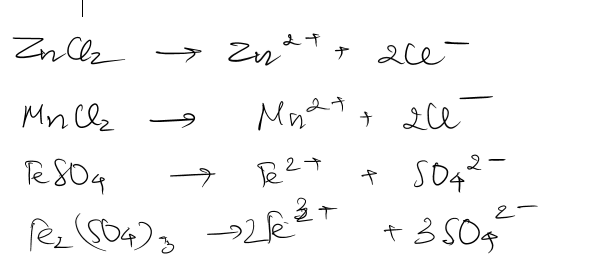 ZnCl₂ → Zn²⁺ + 2Cl⁻
MnCl₂ → Mn²⁺ + 2Cl⁻
FeSO₄ → Fe²⁺ + SO₄²⁻
Fe₂(SO₄)₃ → 2Fe³⁺ + 3SO₄²⁻